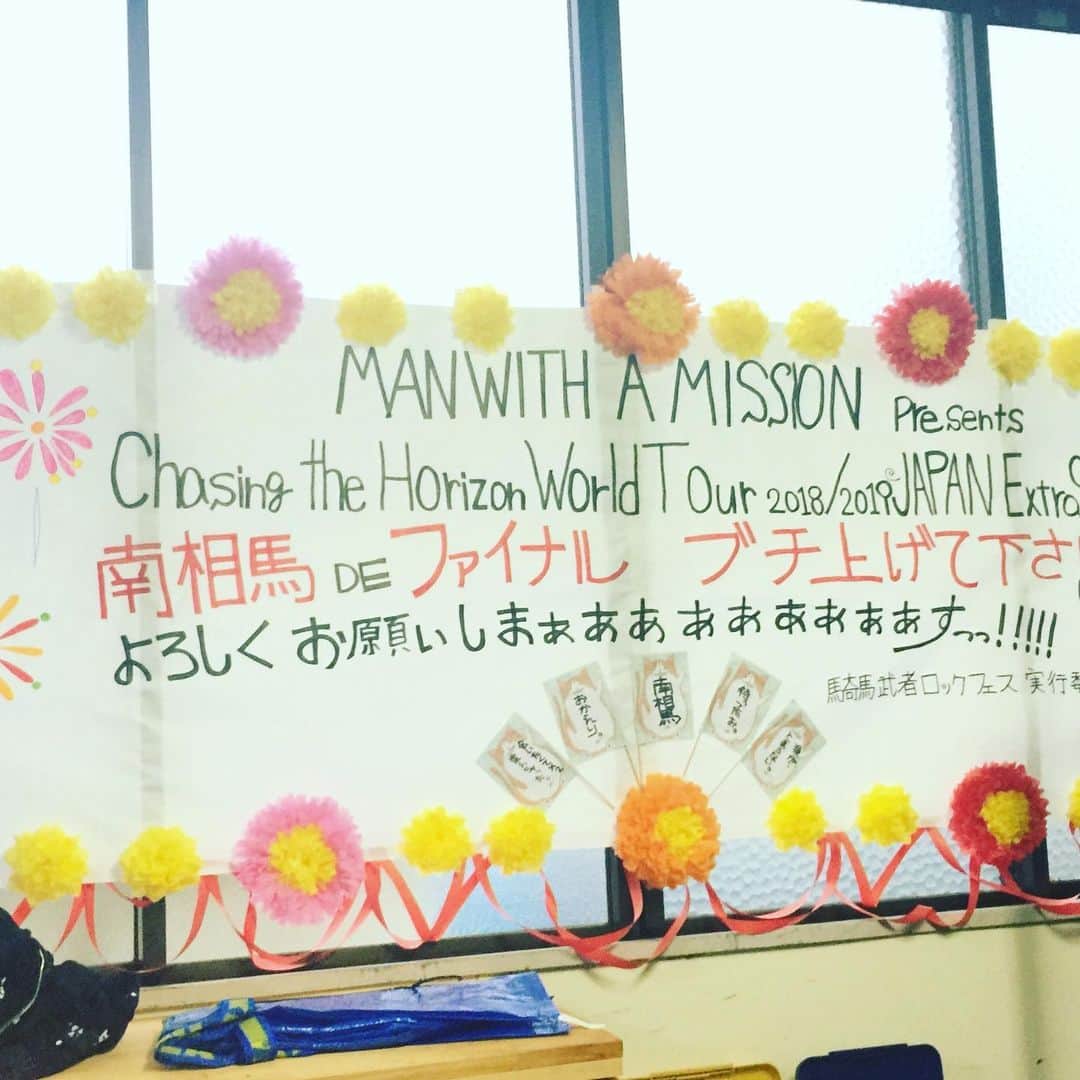 MAN WITH A MISSION Presents
Chasing the Horizon World Tour 2018/2019 JAPAN Extra
南相馬 DE ファイナル ブチ上げて下さ
よろしくお願いしまぁぁぁぁぁぁぁぁぁすっっ!!!!!
騎馬武者ロックフェス 実行委
おかえり。
南相馬